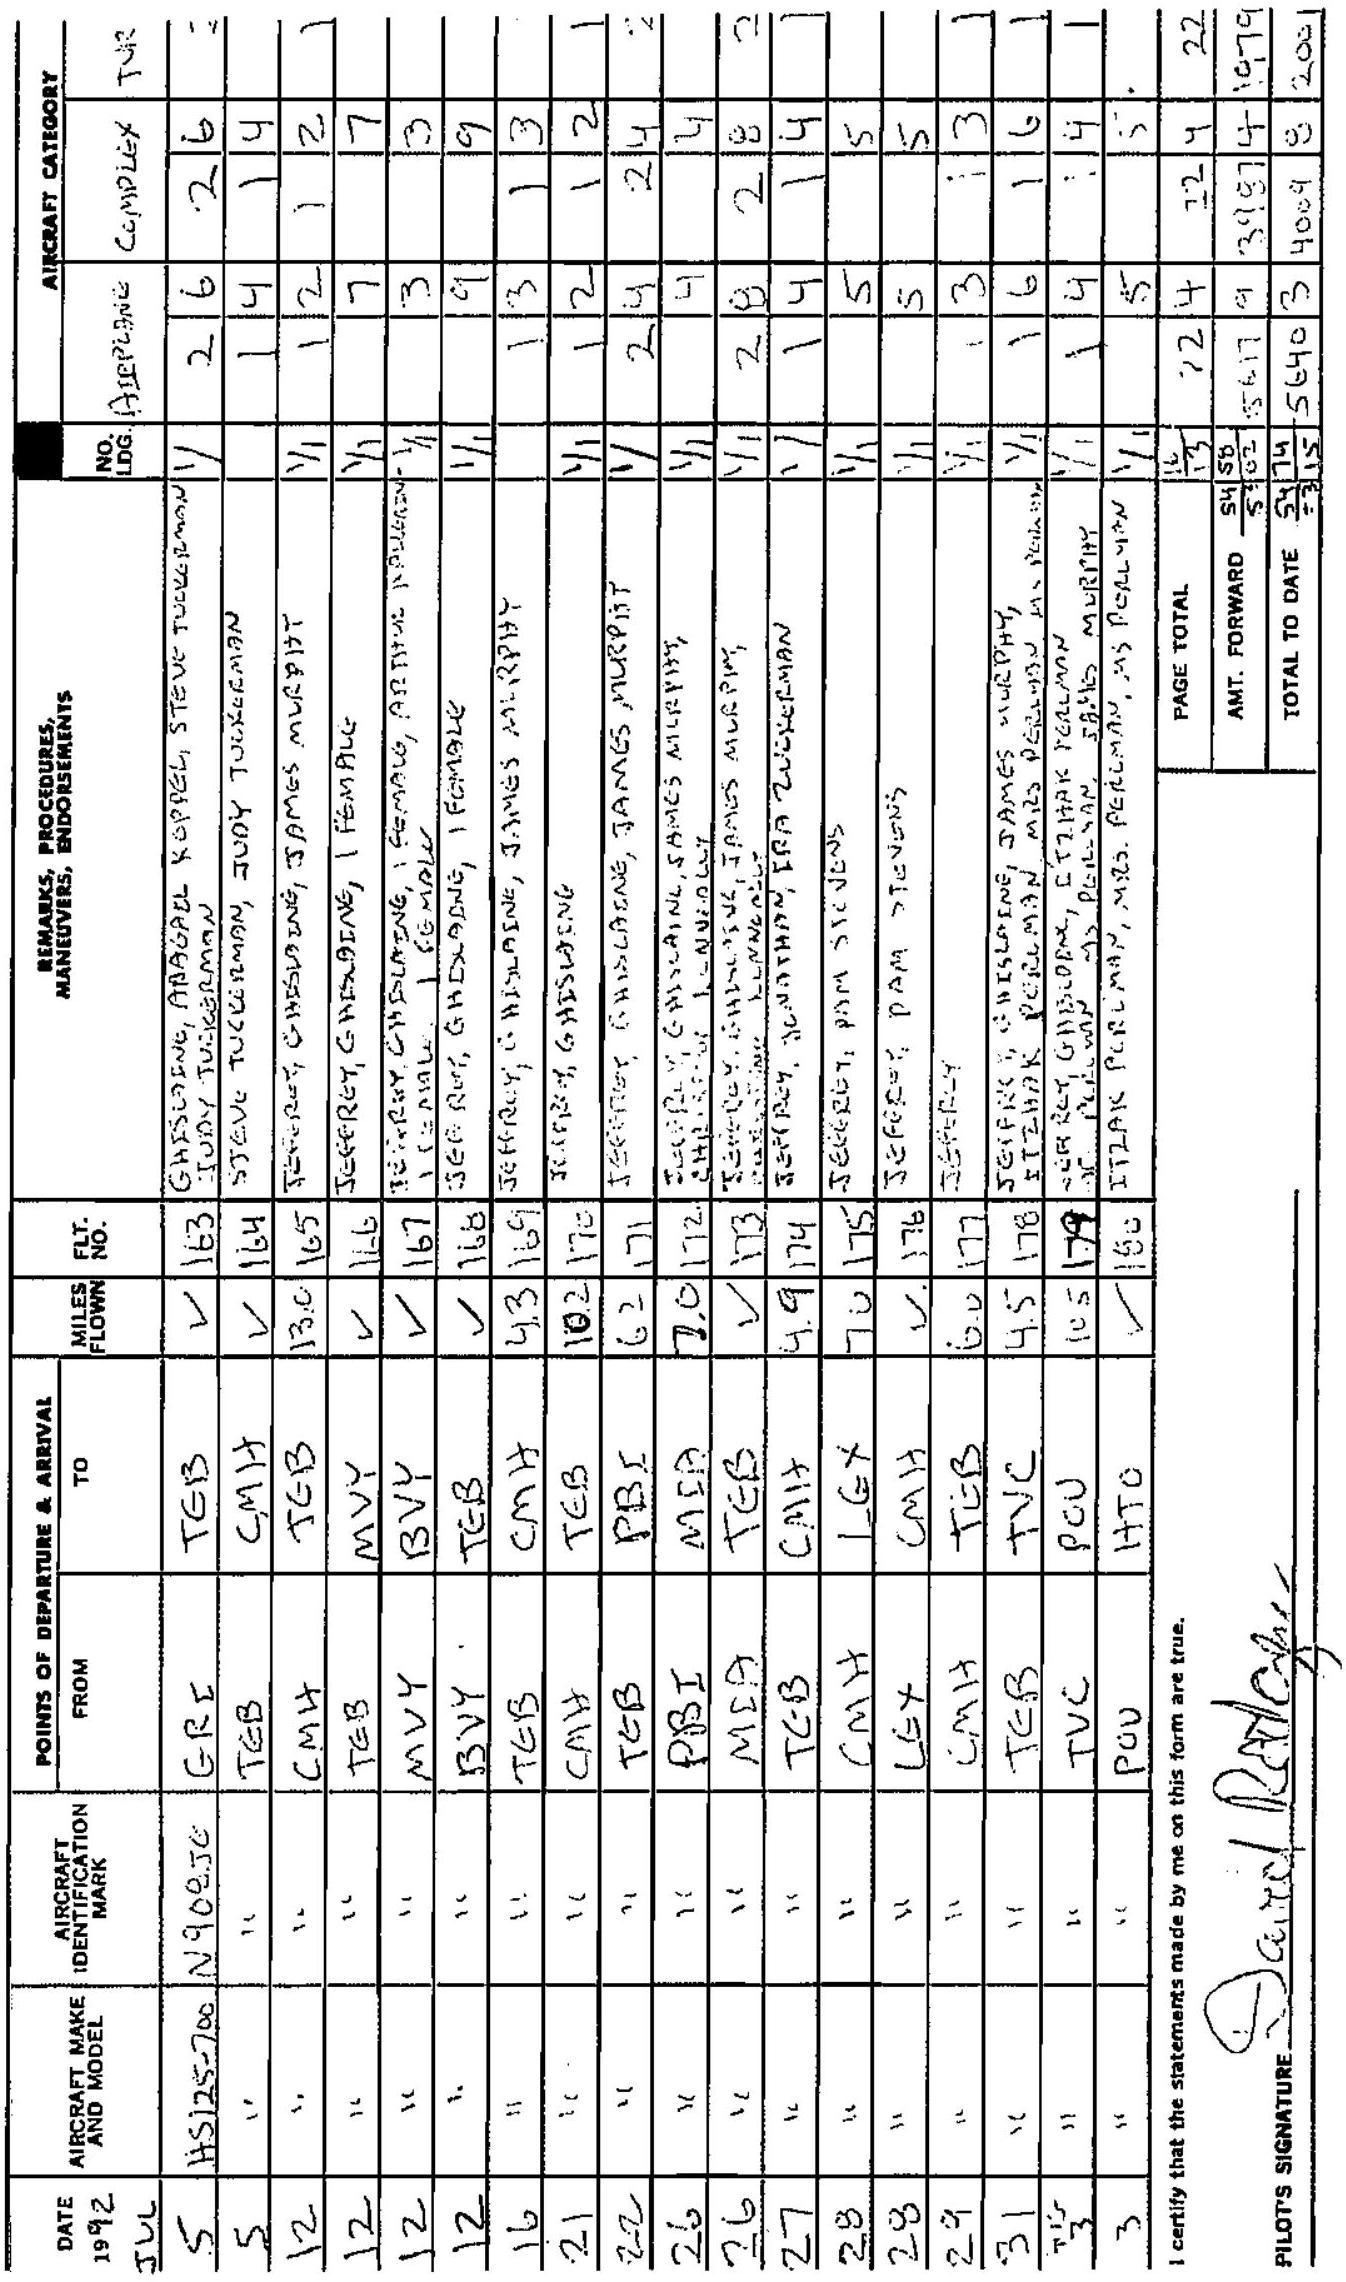 DATE 1992 AIRCRAFT MAKE AND MODEL AIRCRAFT IDENTIFICATION MARK POINTS OF DEPARTURE & ARRIVAL FROM TO MILES FLOWN FLT. NO. REMARKS, PROCEDURES, MANEUVERS, ENDORSEMENTS NO. LDG. AIRCRAFT CATEGORY AIRPLANE COMPLEX TUR
JUL
5 HS125-700 N908JE GRI TEB ✓ 163 GHISLAINE, ABAGAIL KOPPEL, STEVE TUCKERMAN 1/ 2 6 2 6
JUDY TUCKERMAN
5 " " TEB CMH ✓ 164 STEVE TUCKERMAN, JUDY TUCKERMAN 1 4 1 4 1
12 " " CMH TEB 13.0 165 JEFFREY, GHISLAINE, JAMES MURPHY 1/1 1 2 1 2 1
12 " " TEB MVY ✓ 166 JEFFREY, GHISLAINE, 1 FEMALE 1/1 7 7
12 " " MVY BVY ✓ 167 JEFFREY, GHISLAINE, 1 FEMALE, ARTHUR 1/1 3 3
1 FEMALE
12 " " BVY TEB ✓ 168 JEFFREY, GHISLAINE, 1 FEMALE 1/1 9 9
16 " " TEB CMH 4.3 169 JEFFREY, GHISLAINE, JAMES MURPHY 1 3 1 3
21 " " CMH TEB 10.2 170 JEFFREY, GHISLAINE 1/1 1 2 1 2 1
22 " " TEB PBI 6.2 171 JEFFREY, GHISLAINE, JAMES MURPHY 1/ 2 4 2 4 2
26 " " PBI MIA 7.0 172 JEFFREY, GHISLAINE, JAMES MURPHY, 1/1 4 4
KENNEALLY
26 " " MIA TEB ✓ 173 JEFFREY, GHISLAINE, JAMES MURPHY, 1/1 2 8 2 8 2
27 " " TEB CMH 4.9 174 JEFFREY, JONATHAN, IRA ZUCKERMAN 1/ 1 4 1 4 1
28 " " CMH LEX 7.0 175 JEFFREY, PAM STEVENS 1/1 5 5
28 " " LEX CMH ✓ 176 JEFFREY, PAM STEVENS 1/1 5 5
29 " " CMH TEB 6.0 177 JEFFREY 1/1 1 3 1 3 1
31 " " TEB TVC 4.5 178 JEFFREY, GHISLAINE, JAMES MURPHY, 1/1 1 6 1 6 1
ITZHAK PERLMAN, MRS PERLMAN MS PERLMAN
3 " " TVC POU 10.5 179 JEFFREY, GHISLAINE, ITZHAK PERLMAN 1/1 1 4 1 4 1
PERLMAN MS PERLMAN, JAMES MURPHY
3 " " POU HTO ✓ 180 ITZAK PERLMAN, MRS. PERLMAN, MS PERLMAN 1/1 5 5
I certify that the statements made by me on this form are true.
PAGE TOTAL 16/13 22 4 22 4 22
AMT. FORWARD 5458/5302 5617 9 3987 4 1979
TOTAL TO DATE 5474/5315 5640 3 4009 8 2001
PILOT'S SIGNATURE David Rodgers